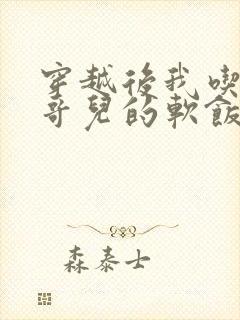 穿越後我喫
哥兒的軟飯
森泰士